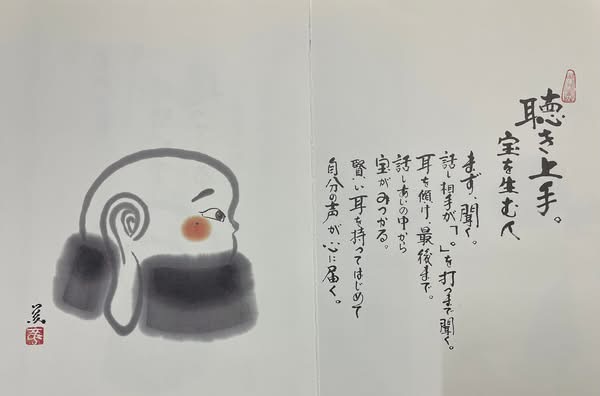 聴き上手。
宝を生む人
まず、聞く。
話し相手が「。」を打つまで聞く。
耳を傾け、最後まで。
話しあじの中から
宝がみつかる。
賢い耳を持ってはじめて
自分の声が心に届く。